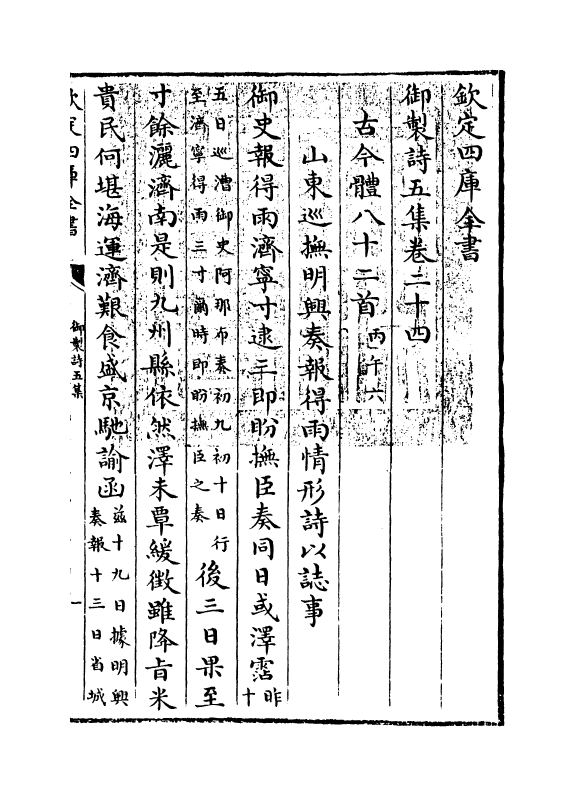 欽定四庫全書
御製詩五集卷二十四
古今體八十二首丙午六
山東巡撫明興奏報得雨情形詩以誌事
御史報得雨濟寧寸逮三即盼撫臣奏同日或澤霑昨
十
五日巡漕御史阿那布奏初九初十日行
至濟寧得雨三寸爾時即盼撫臣之奏
後三日果至
寸餘灑濟南是則九州縣依然澤未覃緩徵雖降旨米
貴民何堪海運濟艱食盛京馳諭函
兹十九日據明興
奏報十三日省城
欽定四庫全書
御製詩五集
一